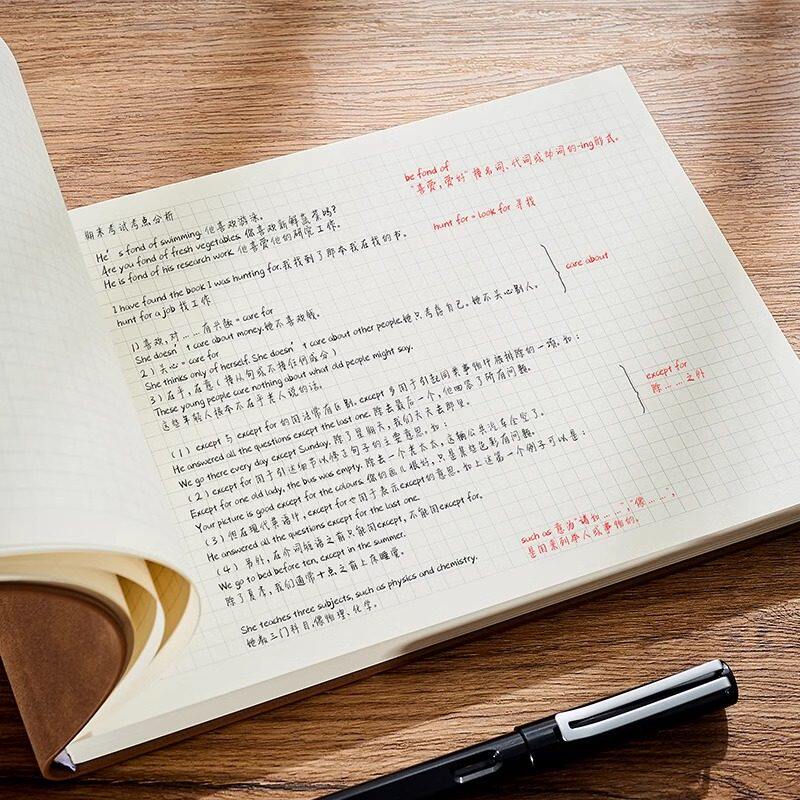 期末考试考点分析
He's fond of swimming. 他喜欢游泳。
Are you fond of fresh vegetables. 你喜欢新鲜蔬菜吗?
He is fond of his research work. 他喜爱他的研究工作。
be fond of
“喜爱,爱好”接名词、代词或动词的-ing形式。
I have found the book I was hunting for. 我找到了那本我在找的书。
hunt for a job 找工作
hunt for = look for 寻找
1) 喜欢,对……有兴趣 = care for
She doesn't care about money. 她不喜欢钱。
2) 关心 = care for
She thinks only of herself. She doesn't care about other people. 她只考虑自己。她不关心别人。
3) 在乎,在意 (接从句或不接任何成分)
These young people care nothing about what old people might say.
这些年轻人根本不在乎老人说的话。
care about
(1) except 与 except for 的用法常有区别。except 多用于引起同类事物中被排除的一项。如:
He answered all the questions except the last one. 除去最后一个,他回答了所有问题。
We go there every day except Sunday. 除了星期天,我们天天去那里。
(2) except for 用于引述细节以修正句子的主要意思。如:
Except for one old lady, the bus was empty. 除去一个老太太,这辆公共汽车全空了。
Your picture is good except for the colours. 你的画儿很好,只是某些色彩有问题。
(3) 但在现代英语中,except for也用于表示except的意思。如上述第一个例子可以是:
He answered all the questions except for the last one.
(4) 另外,在介词短语之前只能用except,不能用except for。
We go to bed before ten, except in the summer.
除了夏季,我们通常十点之前上床睡觉。
except for
除……之外
She teaches three subjects, such as physics and chemistry.
她教三门科目,像物理、化学。
such as 意为“诸如……”,“像……”,
是用来列举人或事物的。